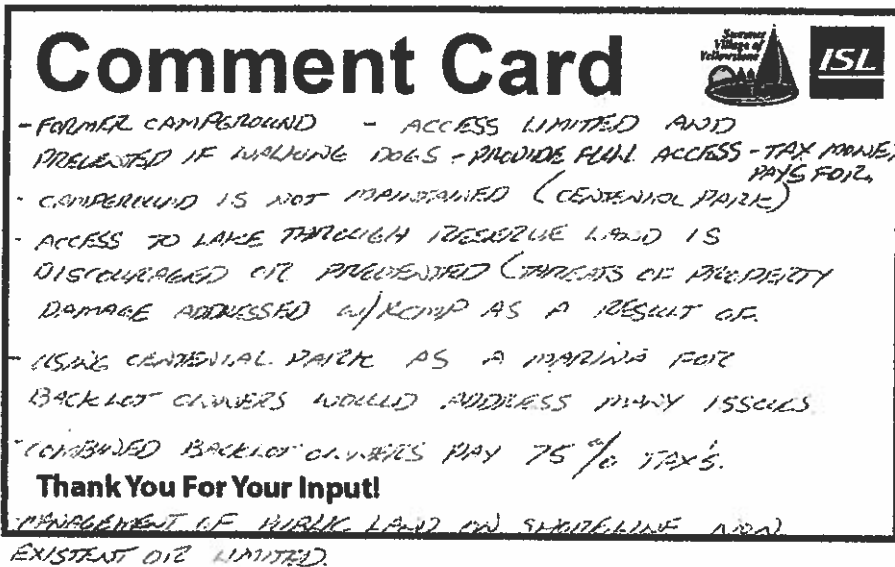 Comment Card
Summer Village of Yellowstone
ISL
- FORMER CAMPGROUND - ACCESS LIMITED AND
PREVENTED IF WALKING DOGS - PROVIDE FULL ACCESS - TAX MONEY
PAYS FOR.
- CAMPGROUND IS NOT MAINTAINED (CENTENIAL PARK)
- ACCESS TO LAKE THROUGH RESERVE LAND IS
DISCOURAGED OR PREVENTED (THREATS OF PROPERTY
DAMAGE ADDRESSED W/ RCMP AS A RESULT OF.
- USING CENTENIAL PARK AS A MARINA FOR
BACKLOT OWNERS WOULD ADDRESS MANY ISSUES
- COMBINED BACKLOT OWNERS PAY 75% TAX'S.
Thank You For Your Input!
- MANAGEMENT OF PUBLIC LAND ON SHORELINE NON
EXISTENT OR LIMITED.